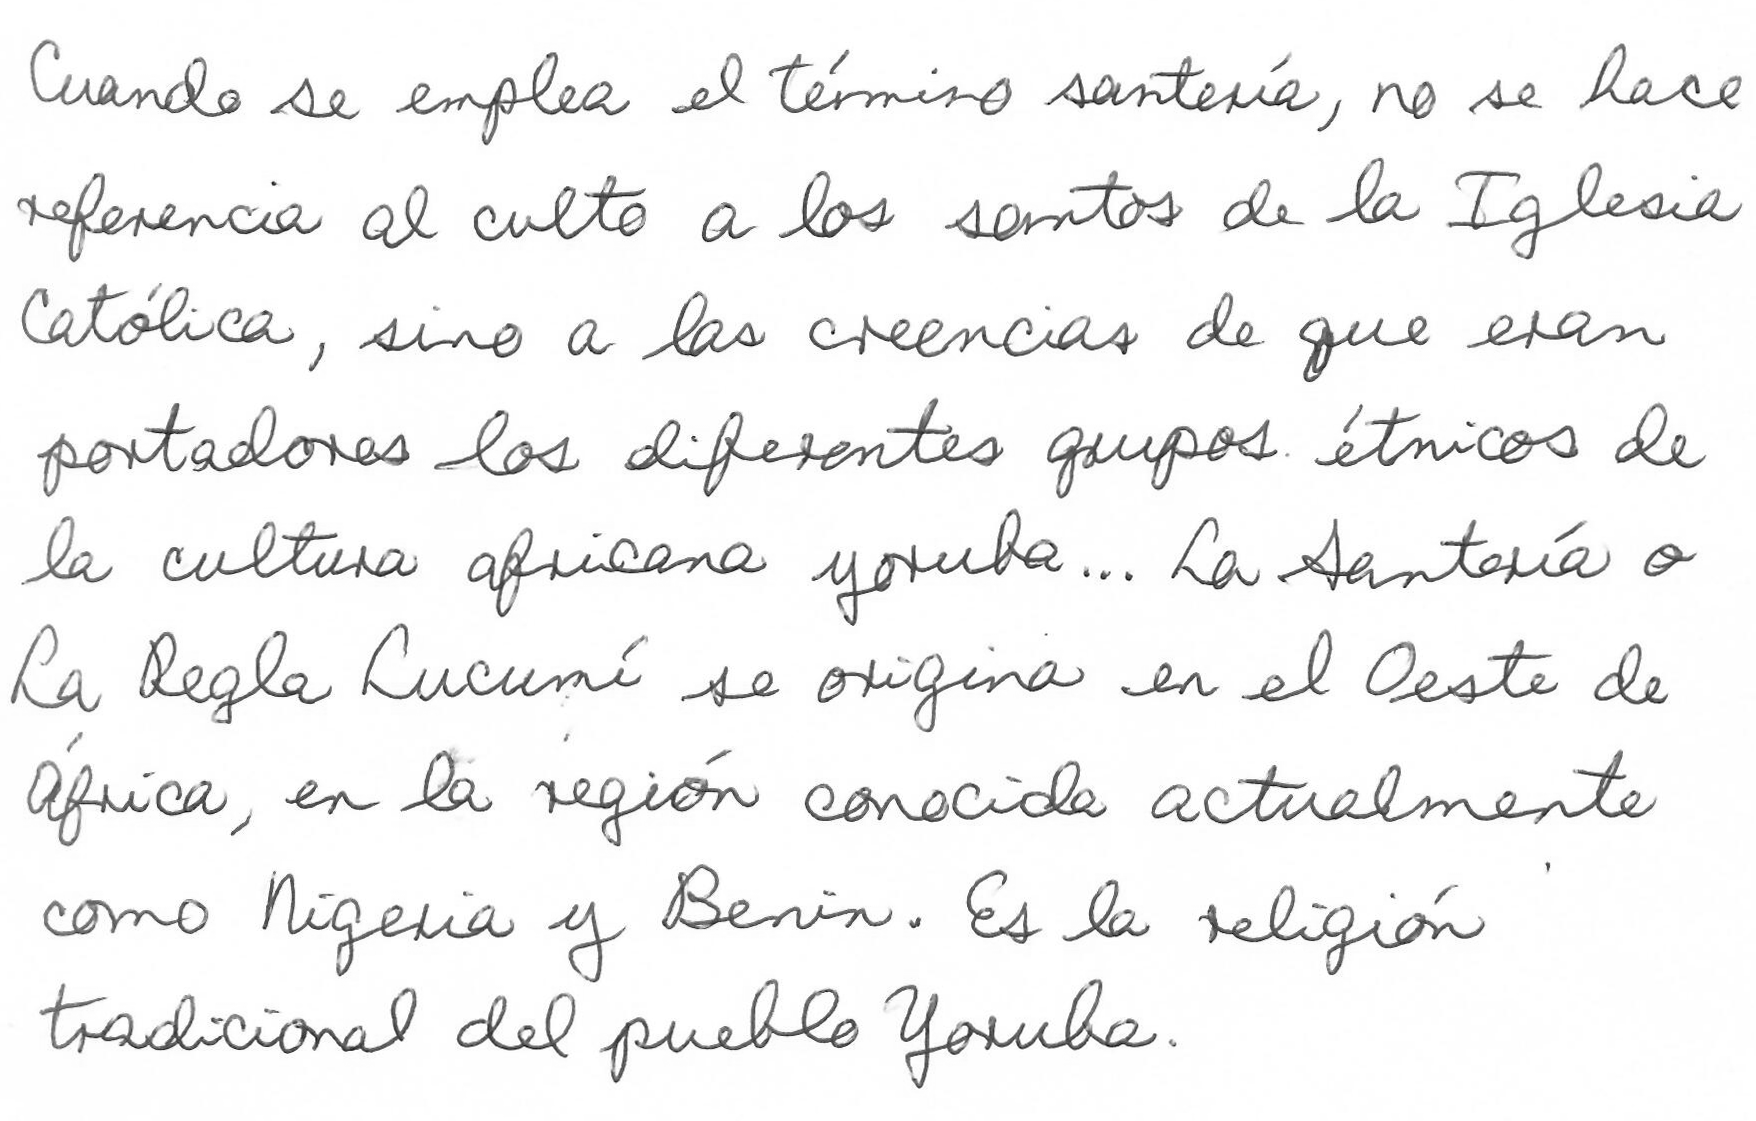 Cuando se emplea el término santería, no se hace
referencia al culto a los santos de la Iglesia
Católica, sino a las creencias de que eran
portadores los diferentes grupos étnicos de
la cultura africana yoruba... La Santería o
La Regla Lucumí se origina en el Oeste de
África, en la región conocida actualmente
como Nigeria y Benin. Es la religión
tradicional del pueblo Yoruba.